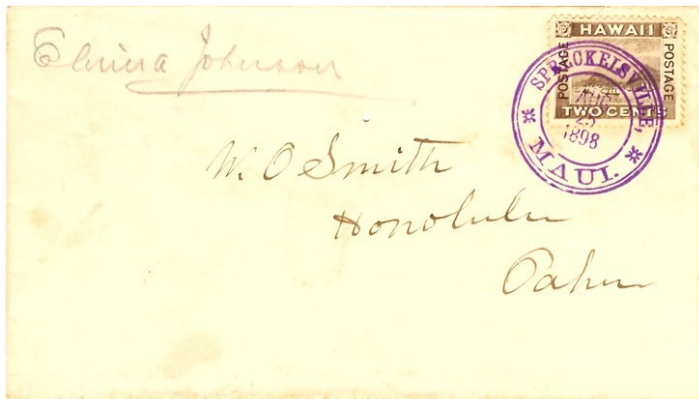 Elmira Johnson
HAWAII
POSTAGE
POSTAGE
TWO CENTS
SPRECKELSVILLE,
AUG
25
1898
MAUI.
W. O Smith
Honolulu
Oahu